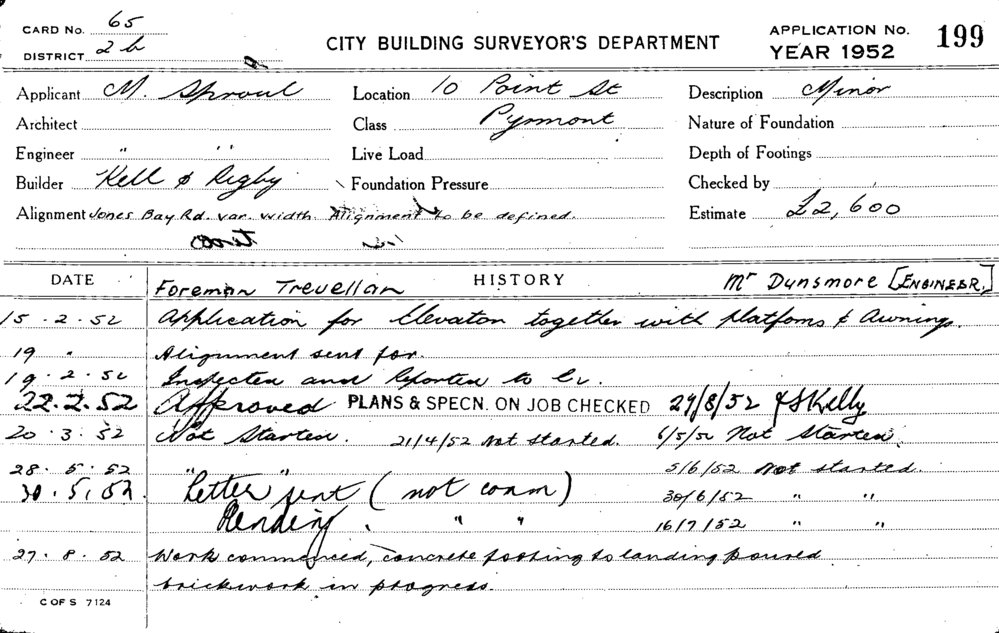 CARD No. 65
DISTRICT 2b
CITY BUILDING SURVEYOR'S DEPARTMENT
APPLICATION No. 199
YEAR 1952
Applicant M. Sproul Location 10 Point St Description Minor
Architect Class Pyrmont Nature of Foundation
Engineer " " Live Load Depth of Footings
Builder Kell & Rigby Foundation Pressure Checked by
Alignment Jones Bay Rd. var. width. Alignment to be defined. Estimate £2,600
DATE HISTORY
Foreman Trevellan Mr Dunsmore [ENGINEER.]
15.2.52 Application for Elevaton together with platfoms & Awnings.
19 " Alignment sent for.
19.2.52 Inspected and Reported to
22.2.52 Approved PLANS & SPECN. ON JOB CHECKED 27/8/52 Kelly
20.3.52 Not Started. 21/4/52 Not started. 6/5/52 Not Started.
28.5.52 " " 5/6/52 Not started.
30.5.52. Letter sent (not comm) 30/6/52 " "
Pending. " " 16/7/52 " "
27.8.52 Work commenced, concrete footing to landing poured
brickwork in progress.
C OF S 7124